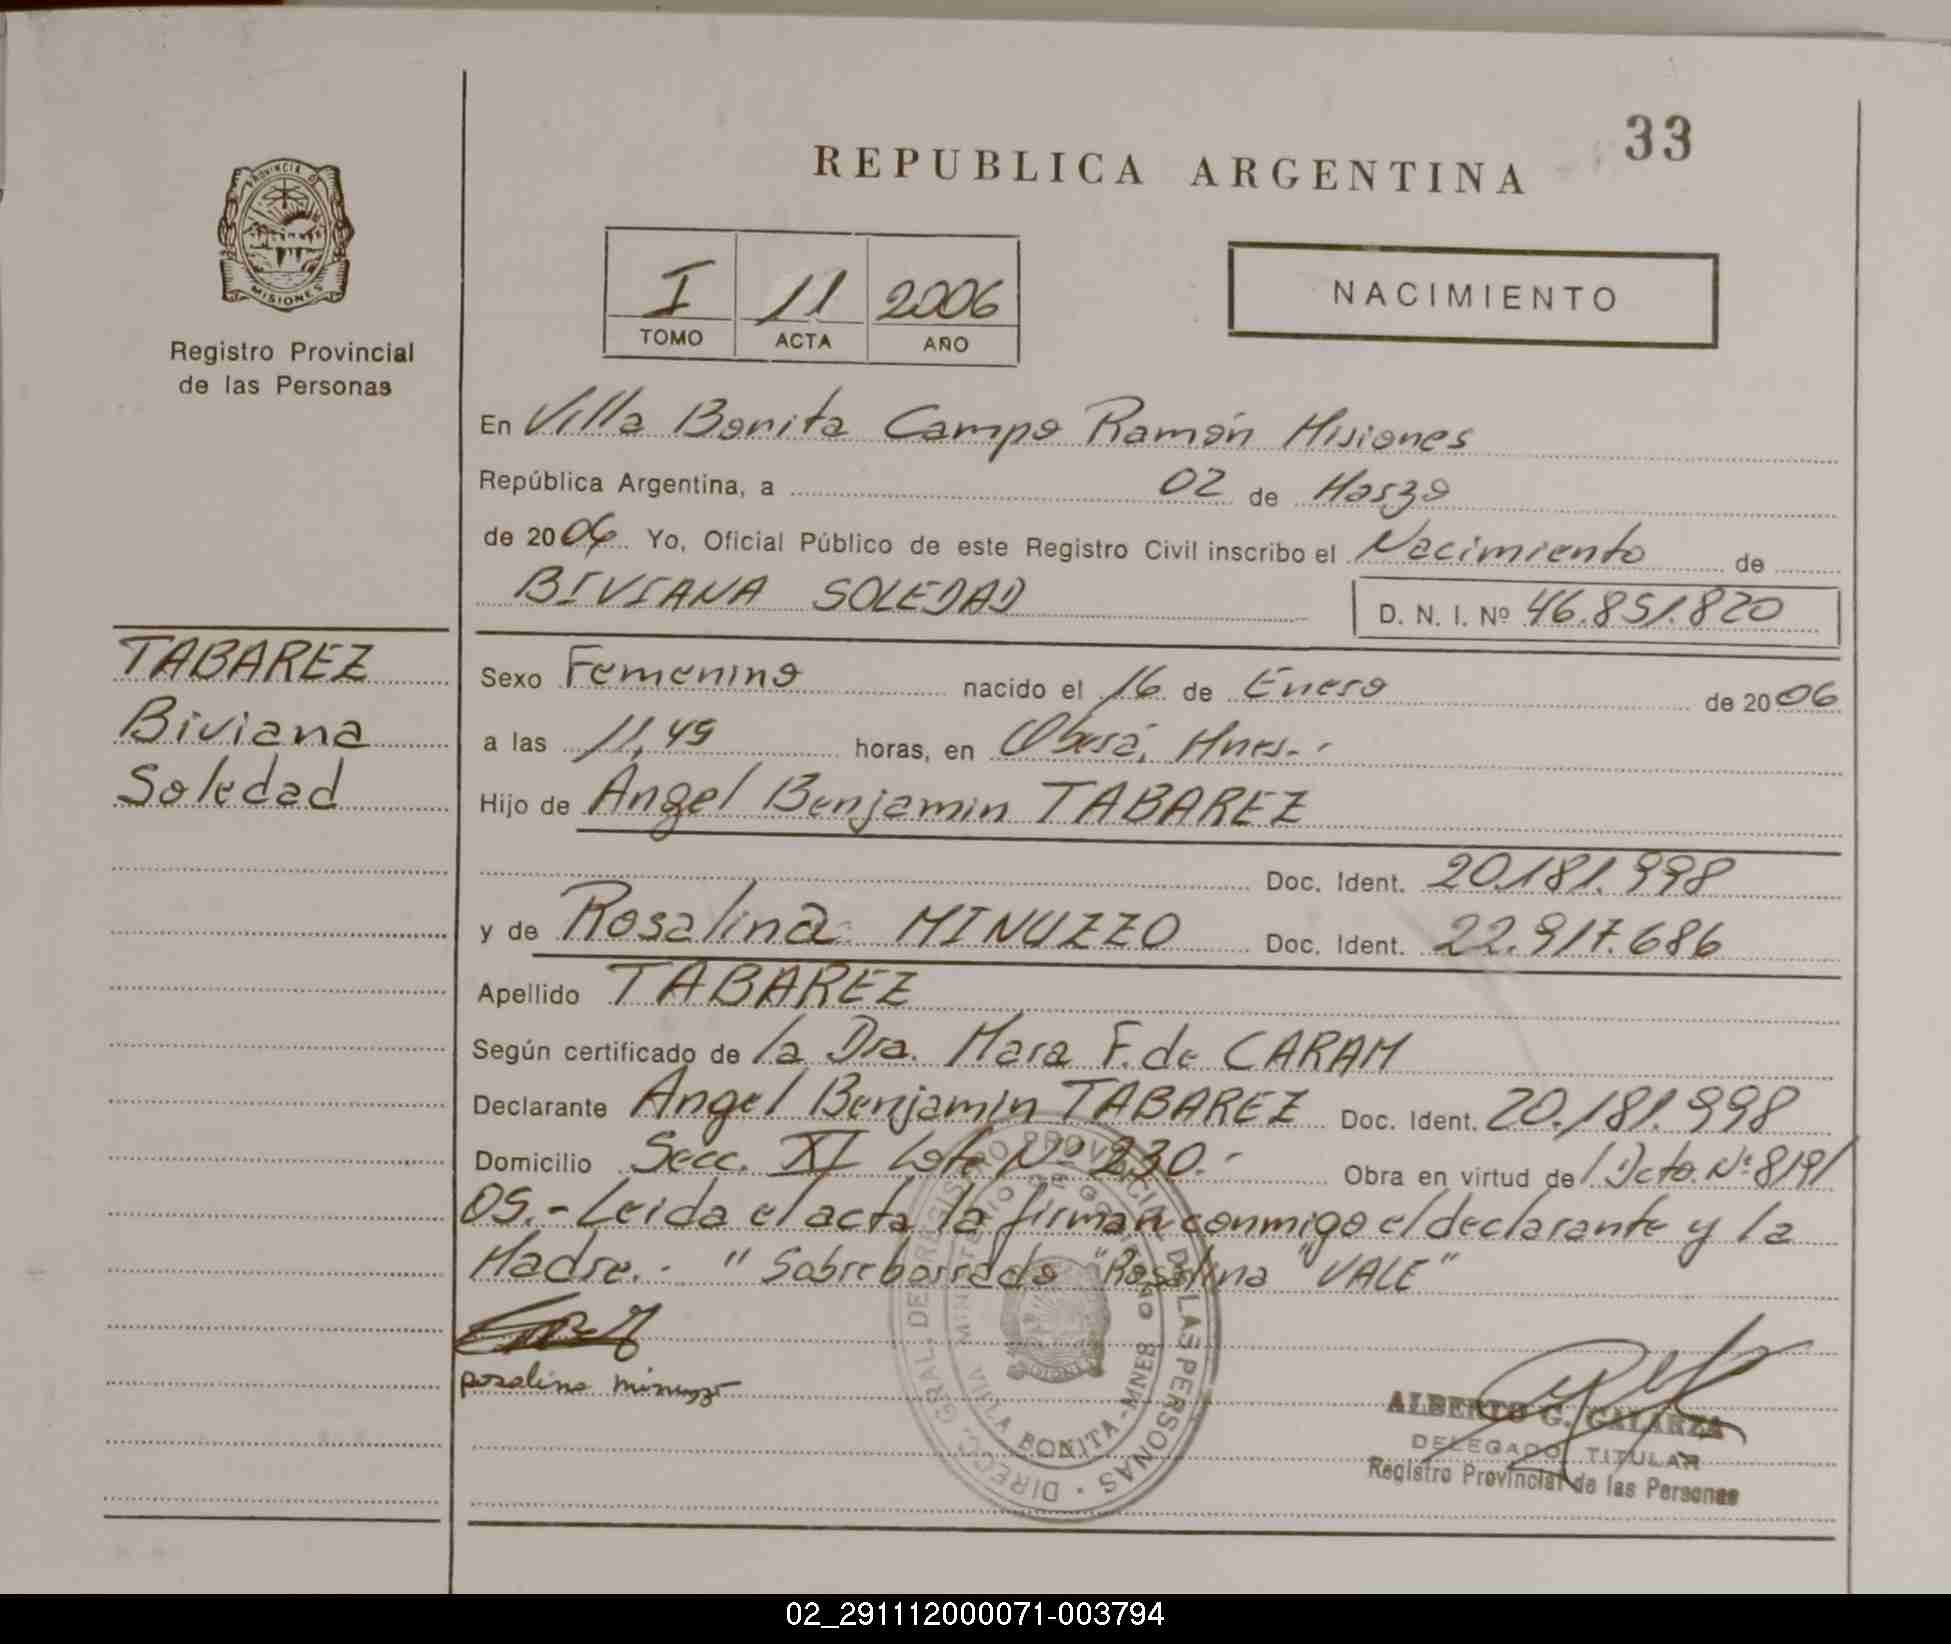 33
REPUBLICA ARGENTINA
PROVINCIA DE
MISIONES
Registro Provincial
de las Personas
I 11 2006
TOMO ACTA AÑO
NACIMIENTO
En Villa Bonita Campo Ramón Misiones
República Argentina, a 02 de Marzo
de 2006 Yo, Oficial Público de este Registro Civil inscribo el Nacimiento de
BIVIANA SOLEDAD D. N. I. Nº 46.851.820
TABAREZ
Biviana
Soledad
Sexo Femenino nacido el 16 de Enero de 2006
a las 11,49 horas, en Oberá, Mnes.-
Hijo de Angel Benjamin TABAREZ
Doc. Ident. 20.181.998
y de Rosalina MINUZZO Doc. Ident. 22.917.686
Apellido TABAREZ
Según certificado de la Dra. Mara F. de CARAM
Declarante Angel Benjamin TABAREZ Doc. Ident. 20.181.998
Domicilio Secc. XI Lote Nº 230.- Obra en virtud del Dcto. Nº 819/
05.- Leida el acta la firman conmigo el declarante y la
Madre.- "Sobreborrado "Rosalina "VALE"
rosalina minuzzo
DIREC. GRAL. DE REGISTRO PROVINCIAL DE LAS PERSONAS
MINISTERIO DE GOBIERNO
VILLA BONITA - MNES
ALBERTO G. GALARZA
DELEGADO TITULAR
Registro Provincial de las Personas
02_291112000071-003794